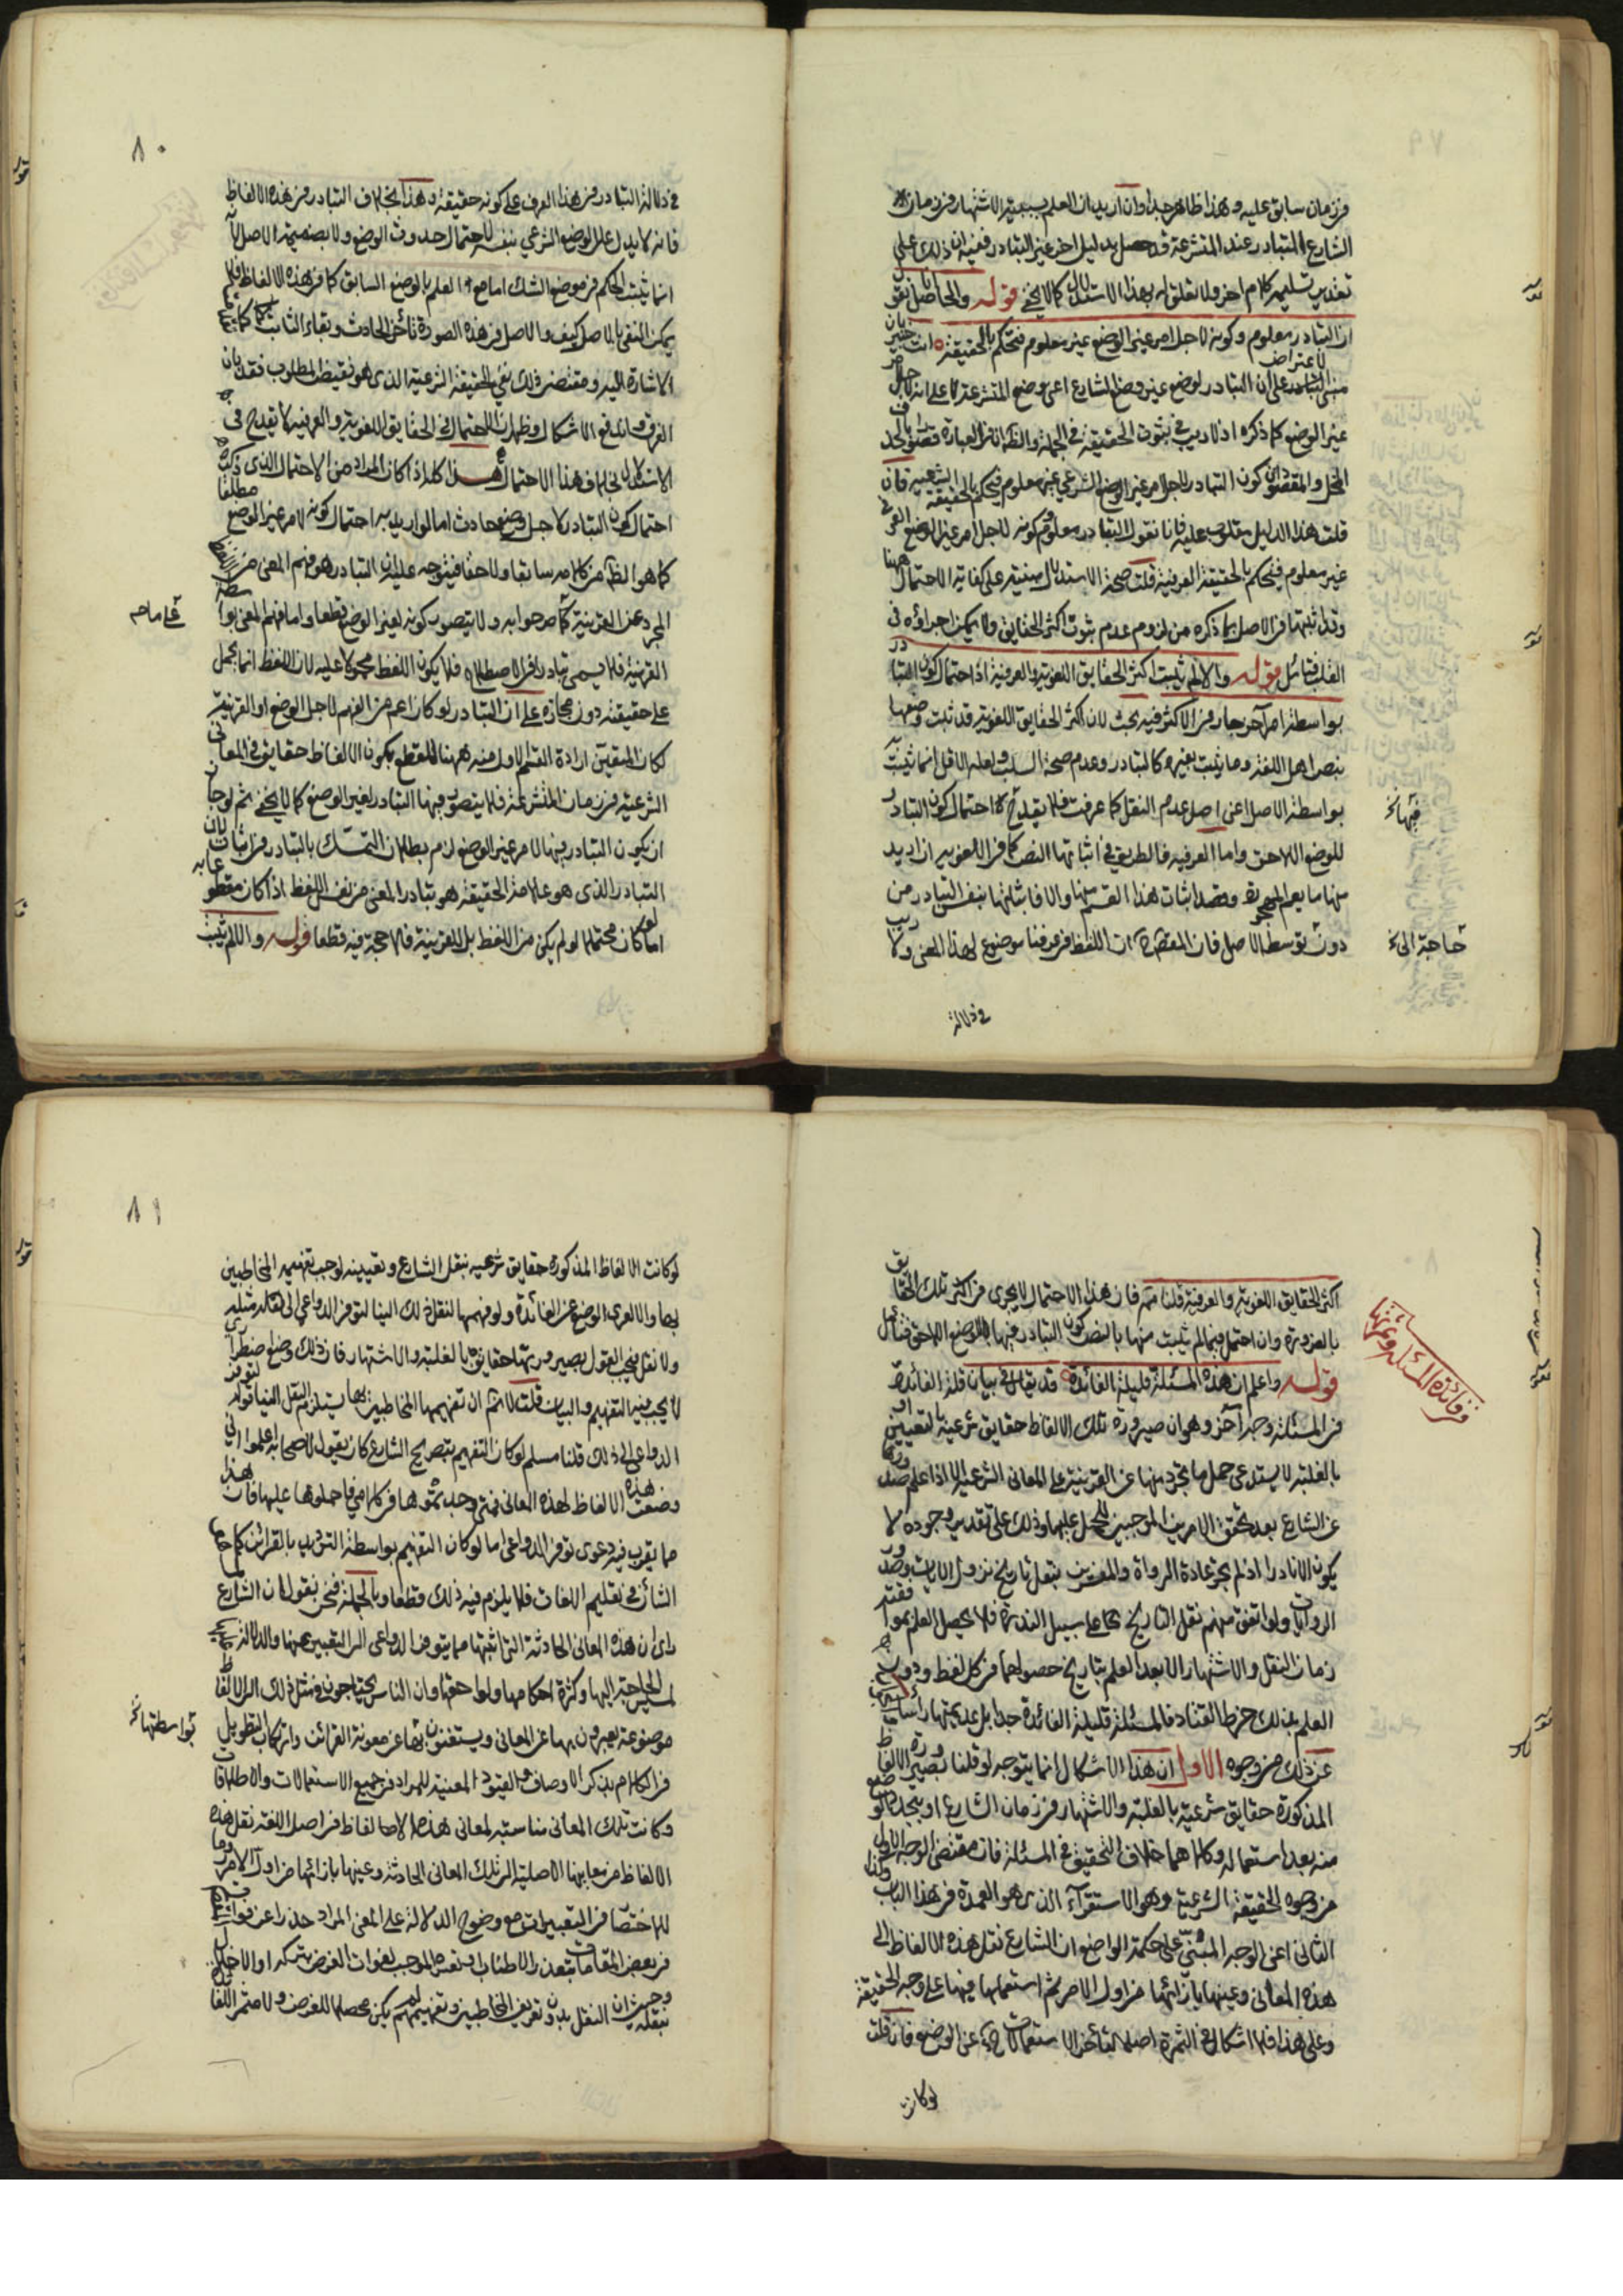 من زمان سابق عليه وهذا ظاهر جدا وان اريد ان العلم بسبقية الاشتهار من زمان
الشارع المتبادر عند المتشرعة قد حصل بدليل اخر غير التبادر ففيه ان ذلك على
تقدير تسليمه كلام اخر ولا تعلق له بهذا الاستدلال كما لا يخفى قوله والحاصل انا نقول
ان التبادر معلوم وكونه لاجل امر غير الوضع غير معلوم فنحكم بالحقيقة انت خبير بان
مبنى الاعتراض على ان التبادر لوضع غير وضع الشارع اعني وضع المتشرعة لا على انه لاجل امر
غير الوضع كما ذكره اذ لا ريب في ثبوت الحقيقة في الجملة
المحل والمقصود ان كون التبادر لاجل امر غير الوضع الشرعي غير معلوم فنحكم بالحقيقة الشرعية فان
قلت هذا الدليل مقلوب عليه فانا نقول التبادر معلوم وكونه لاجل امر غير الوضع العرفي
غير معلوم فنحكم بالحقيقة العرفية قلت صحة الاستدلال مبنية على كفاية الاحتمال ههنا
وقد اثبتها في الاصل بما ذكره من لزوم عدم ثبوت اكثر الحقايق ولا يمكن اجراؤه في
القلب فتامل قوله والا لم يثبت اكثر الحقايق اللغوية والعرفية اذ احتمال كون التبادر
بواسطة امر آخر جار في الاكثر فيه بحث لان اكثر الحقايق اللغوية قد ثبت وضعها
بنص اهل اللغة وما يثبت بغيره كالتبادر وعدم صحة السلب ولعله الاقل انما يثبت
بواسطة الاصل اعني اصل عدم النقل كما عرفت فلا يقدح فيها احتمال كون التبادر
للوضع اللاحق واما العرفية فالطريق في اثباتها النص كما في اللغوية ان اريد
منها ما يعم المهجورة وقصد اثبات هذا القسم منها والا فاثباتها بنفس التبادر من
دون حاجة الى توسط الاصل فان المقصود ح ان اللفظ في عرفنا موضوع لهذا المعنى ولا ريب
فيها
حاجة الى
في دلالة
٨٠
في دلالة التبادر من هذا العرف على كونه حقيقة وهذا بخلاف التبادر من هذه الالفاظ
فانه لا يدل على الوضع الشرعي بنفسه لاحتمال حدوث الوضع ولا بضميمة الاصل لانه
انما يثبت الحكم في موضع الشك اما مع العلم بالوضع السابق كما في هذه الالفاظ فلم
يمكن النفي بالاصل كيف والاصل في هذه الصورة تأخر الحادث وبقاء الثابت كما
الاشارة اليه ومقتضى ذلك نفي الحقيقة الشرعية الذي هو نقيض المطلوب فقد بان
الفرق واندفع الاشكال وظهر ان الاحتمال في الحقايق اللغوية والعرفية لا يقدح في
الاستدلال بخلاف هذا الاحتمال هذا كله اذا كان المراد من الاحتمال الذي ذكره
احتمال كون التبادر لاجل وضع حادث اما لو اريد به احتمال كونه لامر غير الوضع مطلقا
كما هو الظ من كلامه سابقا ولاحقا فيتوجه عليه ان التبادر هو فهم المعنى من اللفظ
المجرد عن القرينة كما صرحوا به ولا يتصور كونه لغير الوضع قطعا واما فهم المعنى بواسطة
على ما مر
القرينة فلا يسمى تبادرا في الاصطلاح فلا يكون اللفظ محمولا عليه لان اللفظ انما يحمل
على حقيقته دون مجازه على ان التبادر لو كان اعم من الفهم لاجل الوضع او القرينة
لكان المتعين ارادة القسم الاول منه ههنا للقطع بكون الالفاظ حقايق في المعاني
الشرعية في زمان المتشرعة فلا يتصور فيها التبادر لغير الوضع كما لا يخفى ثم لو جاز
ان يكون المتبادر فيها لامر غير الوضع لزم بطلان التمسك بالتبادر في اثباته لان
التبادر الذي هو علامة الحقيقة هو تبادر المعنى من نفس اللفظ اذا كان مقطوعا به
اما لو كان محتملا لو لم يكن من اللفظ بل للقرينة فلا حجة فيه قطعا قوله والا لم يثبت
اكثر الحقايق اللغوية والعرفية قلنا ثم فان هذا الاحتمال لا يجرى في اكثر تلك الحقايق
بالضرورة وان احتمل فيما لم يثبت منها بالنص كون التبادر فيها للوضع اللاحق فتأمل
قوله واعلم ان هذه المسئلة قليلة الفائدة قد يقال في بيان قلة الفائدة
في فائدة المسئلة وثمرتها
في المسئلة وجه آخر وهو ان صيرورة تلك الالفاظ حقايق شرعية بالتعيين او
بالغلبة لا يستدعى حمل ما تجرد منها عن القرينة على المعاني الشرعية الا اذا علم صدورها
عن الشارع بعد تحقق الامرين الموجبين للحمل عليها وذلك على تقدير وجوده لا
يكون الا نادرا اذ لم تجر عادة الرواة والمفسرين بنقل تاريخ نزول الايات وصدور
الروايات ولو اتفق منهم نقل التاريخ على سبيل الندرة فلا يحصل العلم بموافقته
زمان النقل والاشتهار الا بعد العلم بتاريخ حصولهما في كل لفظ ودون
العلم بذلك خرط القتاد فالمسئلة قليلة الفائدة جدا بل عديمتها رأسا
عن ذلك من وجوه الاول ان هذا الاشكال انما يتوجه لو قلنا بصيرورة الالفاظ
المذكورة حقايق شرعية بالغلبة والاشتهار في زمان الشارع او بتجدد الوضع
منه بعد استعماله وكلاهما خلاف التحقيق في المسئلة فان مقتضى الوجه الاول
من وجوه الحقيقة الشرعية وهو الاستقرآء الذي هو العمدة في هذا الباب وكذا
الثاني اعني الوجه المبني على حكمة الواضع ان الشارع نقل هذه الالفاظ الى
هذه المعاني وعينها بازائها من اول الامر ثم استعملها فيها على وجه الحقيقة
وعلى هذا فلا اشكال في الثمرة اصلا لتأخر الاستعمالات ح عن الوضع فان قلت
لو كانت
٨١
لو كانت الالفاظ المذكورة حقايق شرعية بنقل الشارع وتعيينه لوجب تفهيمه المخاطبين
بها والا لعرى الوضع عن الفائدة ولو فهمها لنقل ذلك الينا لتوفر الدواعي الى نقل مثله
ولا نقل فيجب القول بصيرورتها حقايق بالغلبة والاشتهار فان ذلك وضع اضطراري
لا يجب فيه التفهيم والبيان قلت لا نم ان تفهيمها المخاطبين بها يستلزم النقل الينا قوله لتوفر
الدواعي الى ذلك قلنا مسلم لو كان التفهيم بتصريح الشارع كان يقول لاصحابه اعلموا اني
وضعت هذه الالفاظ لهذه المعاني فمتى وجدتموها في كلامي فاحملوها عليها فان هذا
مما يقرب فيه دعوى توفر الدواعي اما لو كان التفهيم بواسطة الترديد بالقرائن كما هو
الشأن في تعليم اللغات فلا يلزم فيه ذلك قطعا وبالجملة فنحن نقول ان الشارع لما
رأى ان هذه المعاني الحادثة التي اثبتها مما يتوفر الدواعي الى التعبير عنها والدلالة عليها
لمسيس الحاجة اليها وكثرة احكامها ولواحقها وان الناس يحتاجون في مثل ذلك الى الالفاظ
موضوعة يعبرون بها عن المعاني ويستغنون بها عن معونة القرائن وارتكاب التطويل
بواسطتها
في الكلام بذكر الاوصاف والقيود المعينة للمراد في جميع الاستعمالات والاطلاقات
وكانت تلك المعاني مناسبة لمعاني هذه الالفاظ في اصل اللغة نقل هذه
الالفاظ من معانيها الاصلية الى تلك المعاني الحادثة وعينها بازائها من اول الامر
للاختصار في التعبير مع وضوح الدلالة على المعنى المراد حذرا عن فوات
في بعض المقامات بتعذر الاطناب وتعسره الموجب لفوات الغرض بتركه او الاخلال
وحيث ان النقل بدون تعريف المخاطبين وتفهيمهم لم يكن محصلا للغرض